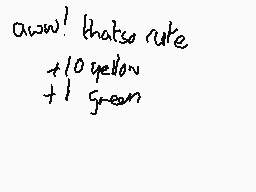 aww! thatso cute
+10 yellow
+1 green